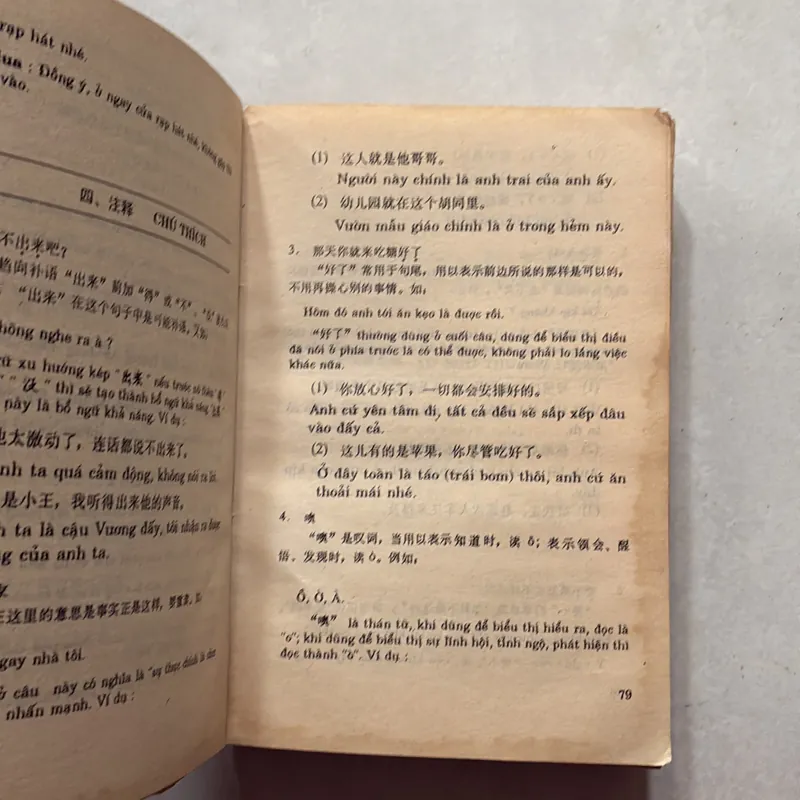 rạp hát nhé.
: Đồng ý, ở ngay cửa rạp hát nhé, không gặp thì
vào.
四、注释 CHÚ THÍCH
不出来吧？
趋向补语“出来”前加“得”或“不”、
“出来”在这个句子中是可能补语，又如：
hông nghe ra à ?
xu hướng kép "出来" nếu trước nó
" "没" thì sẽ tạo thành bổ ngữ khả năng,
này là bổ ngữ khả năng. Ví dụ :
也太激动了，连话都说不出来了。
nh ta quá cảm động, không nói ra lời.
是小王，我听得出来他的声音。
ta là cậu Vương đấy, tôi nhận ra được
của anh ta.
在这里的意思是事实正是这样，
gay nhà tôi.
ở câu này có nghĩa là "sự thực chính là như
nhấn mạnh. Ví dụ :
(1) 这人就是他哥哥。
Người này chính là anh trai của anh ấy.
(2) 幼儿园就在这个胡同里。
Vườn mẫu giáo chính là ở trong hẻm này.
3. 那天你就来吃糖好了
“好了”常用于句尾，用以表示前边所说的那样是可以的，
不用再操心别的事情。如：
Hôm đó anh tới ăn kẹo là được rồi.
"好了" thường dùng ở cuối câu, dùng để biểu thị điều
đã nói ở phía trước là có thể được, không phải lo lắng việc
khác nữa.
(1) 你放心好了，一切都会安排好的。
Anh cứ yên tâm đi, tất cả đều sẽ sắp xếp đâu
vào đấy cả.
(2) 这儿有的是苹果，你尽管吃好了。
Ở đây toàn là táo (trái bom) thôi, anh cứ ăn
thoải mái nhé.
4. 噢
“噢”是叹词，当用以表示知道时，读 ō；表示领会、醒
悟、发现时，读 ò。例如：
Ồ, Ờ, À.
"噢" là thán từ, khi dùng để biểu thị hiểu ra, đọc là
"o"; khi dùng để biểu thị sự lĩnh hội, tỉnh ngộ, phát hiện thì
đọc thành "ò". Ví dụ :
79